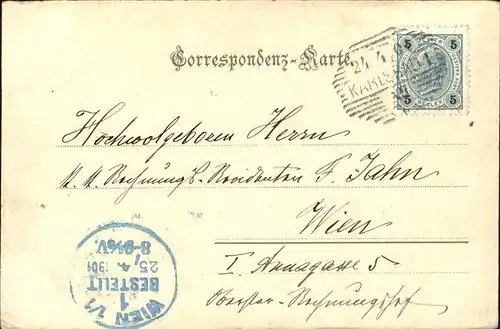 Correspondenz-Karte.
5 5
24.4
KARLS
5 5
Hochwolgeboren Herrn
k. k. Rechnungs-Revidenten F. Jahn
Wien
I Annagasse 5
Oberster-Rechnungshof
WIEN 1/1
1
BESTELLT
25.4.1901
8-9½V.